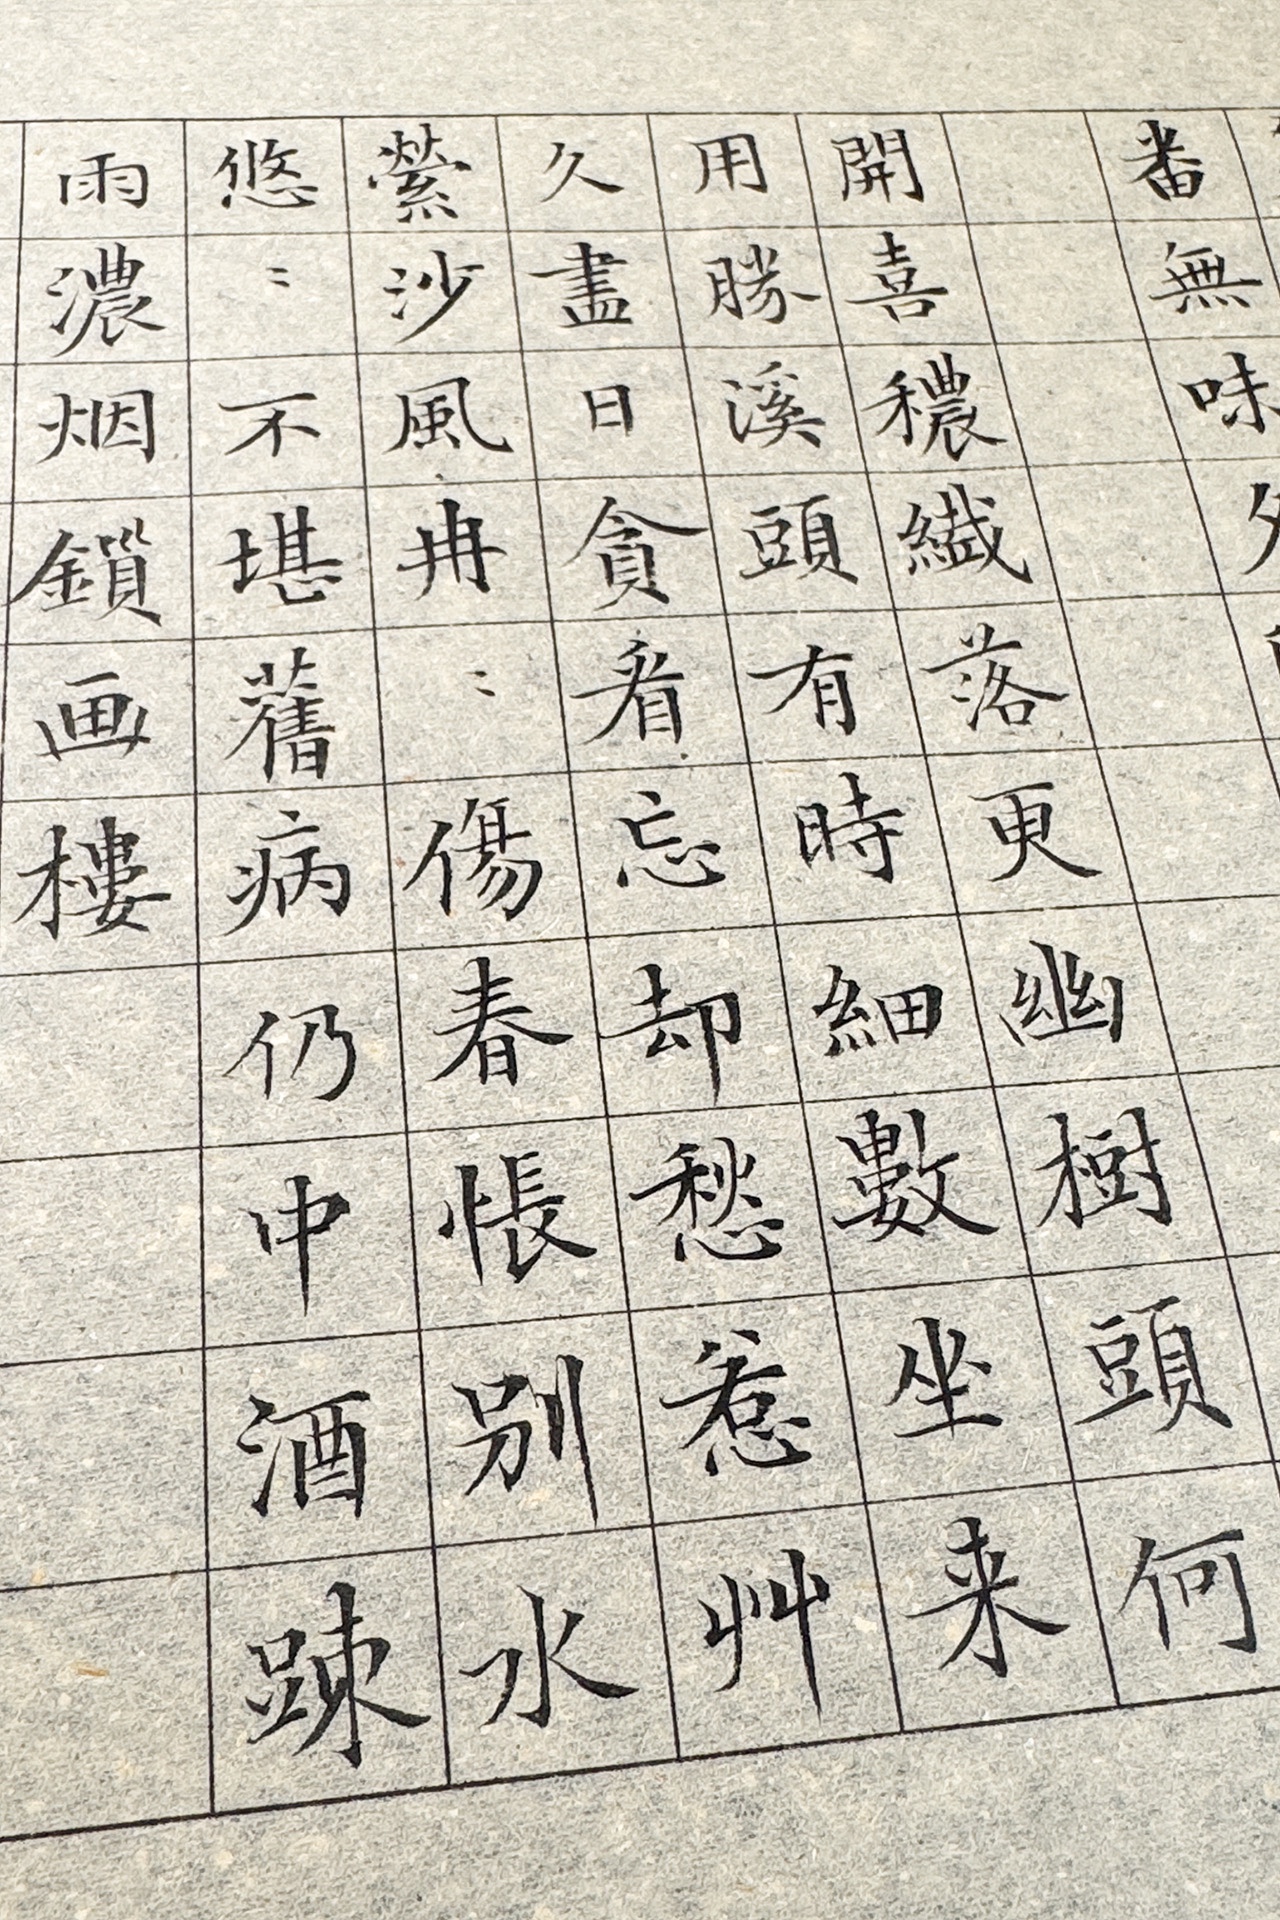 番無味
開喜穠纎落更幽樹頭何
用勝溪頭有時細數坐来
久盡日貪看忘却愁惹艸
縈沙風冉〻傷春悵别水
悠〻不堪舊病仍中酒踈
雨濃烟鎖画樓